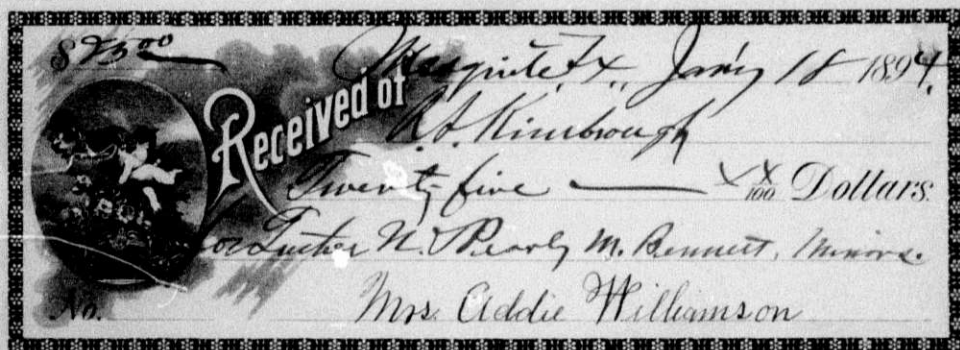 $25 00
Mesquite, Tx., Jan'y 18 1894.
Received of R. A. Kimbrough
Twenty-five xx/100 Dollars.
for Luther N. & Pearly M. Bennett, Minors.
No. Mrs. Addie Williamson